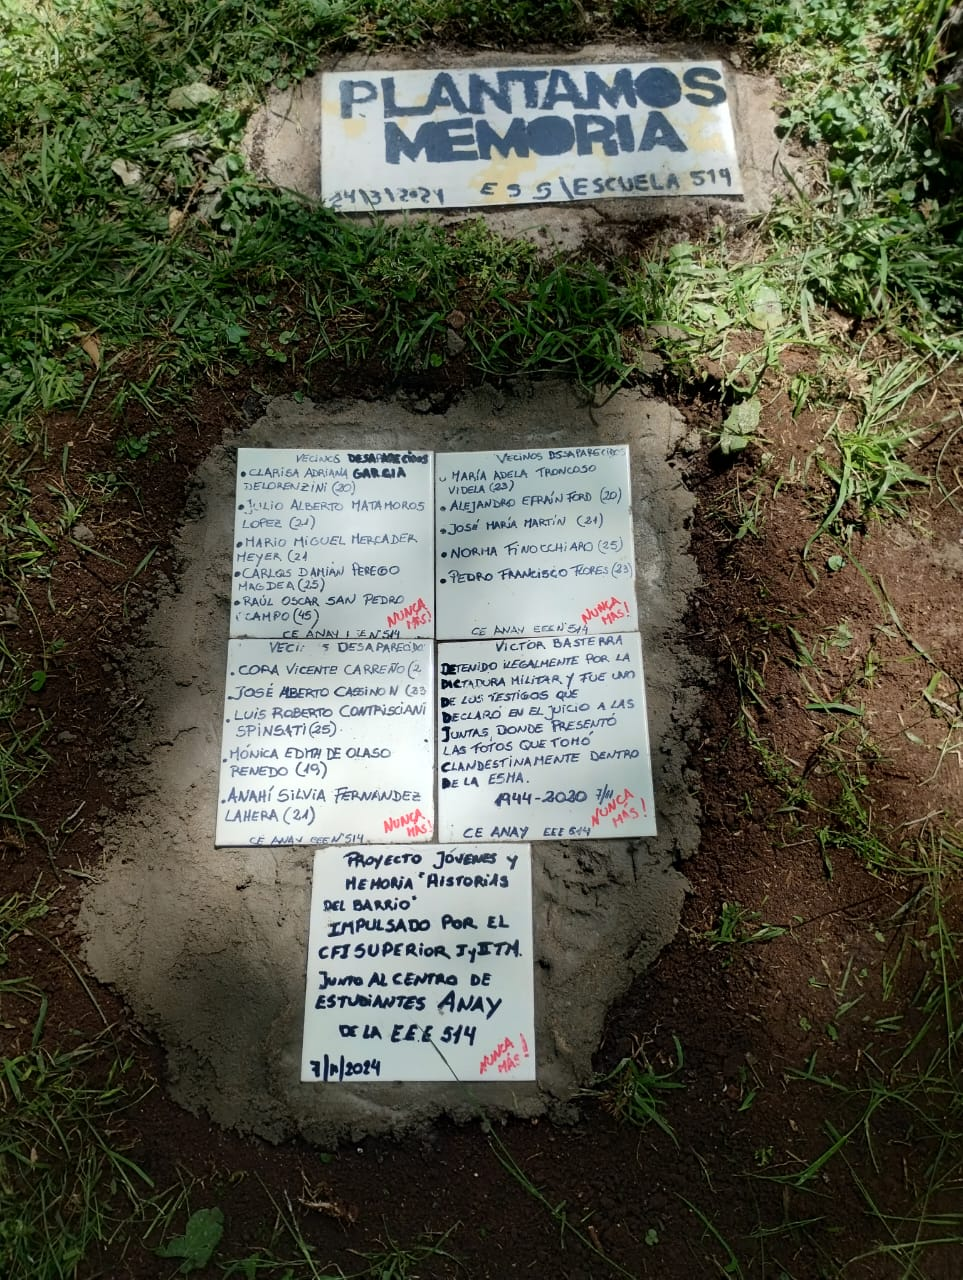 PLANTAMOS
MEMORIA
24/3/2024 E S S\ESCUELA 514
VECINOS DESAPARECIDOS
• CLARISA ADRIANA GARCIA
DELORENZINI (20)
• JULIO ALBERTO MATAMOROS
LOPEZ (21)
• MARIO MIGUEL MERCADER
MEYER (21
• CARLOS DAMIÁN PEREGO
MAGDEA (25)
• RAÚL OSCAR SAN PEDRO
CAMPO (45)
NUNCA
MÁS!
CE ANAY EEE Nº514
VECINOS DESAPARECIDOS
• MARÍA ADELA TRONCOSO
VIDELA (23)
• ALEJANDRO EFRAÍN FORD (20)
• JOSÉ MARÍA MARTÍN (21)
• NORMA FINOCCHIARO (25)
• PEDRO FRANCISCO FLORES (23)
NUNCA
MÁS!
CE ANAY EEE Nº514
VECI S DESAPARECIDO
• CORA VICENTE CARREÑO (2
• JOSÉ ALBERTO CASSINO N (23
• LUIS ROBERTO CONTRISCIANI
SPINSATI (25)
• MÓNICA EDITH DE OLASO
RENEDO (19)
• ANAHÍ SILVIA FERNÁNDEZ
LAHERA (21)
NUNCA
MÁS!
CE ANAY EEE Nº514
VICTOR BASTERRA
DETENIDO ILEGALMENTE POR LA
DICTADURA MILITAR Y FUE UNO
DE LOS TESTIGOS QUE
DECLARÓ EN EL JUICIO A LAS
JUNTAS, DONDE PRESENTÓ
LAS FOTOS QUE TOMÓ
CLANDESTINAMENTE DENTRO
DE LA ESMA.
1944-2020 7/11
NUNCA
MÁS!
CE ANAY EEE 514
PROYECTO JÓVENES Y
MEMORIA "HISTORIAS
DEL BARRIO"
IMPULSADO POR EL
CFI SUPERIOR I y II TM.
JUNTO AL CENTRO DE
ESTUDIANTES ANAY
DE LA E.E.E 514
NUNCA
MÁS!
7/11/2024